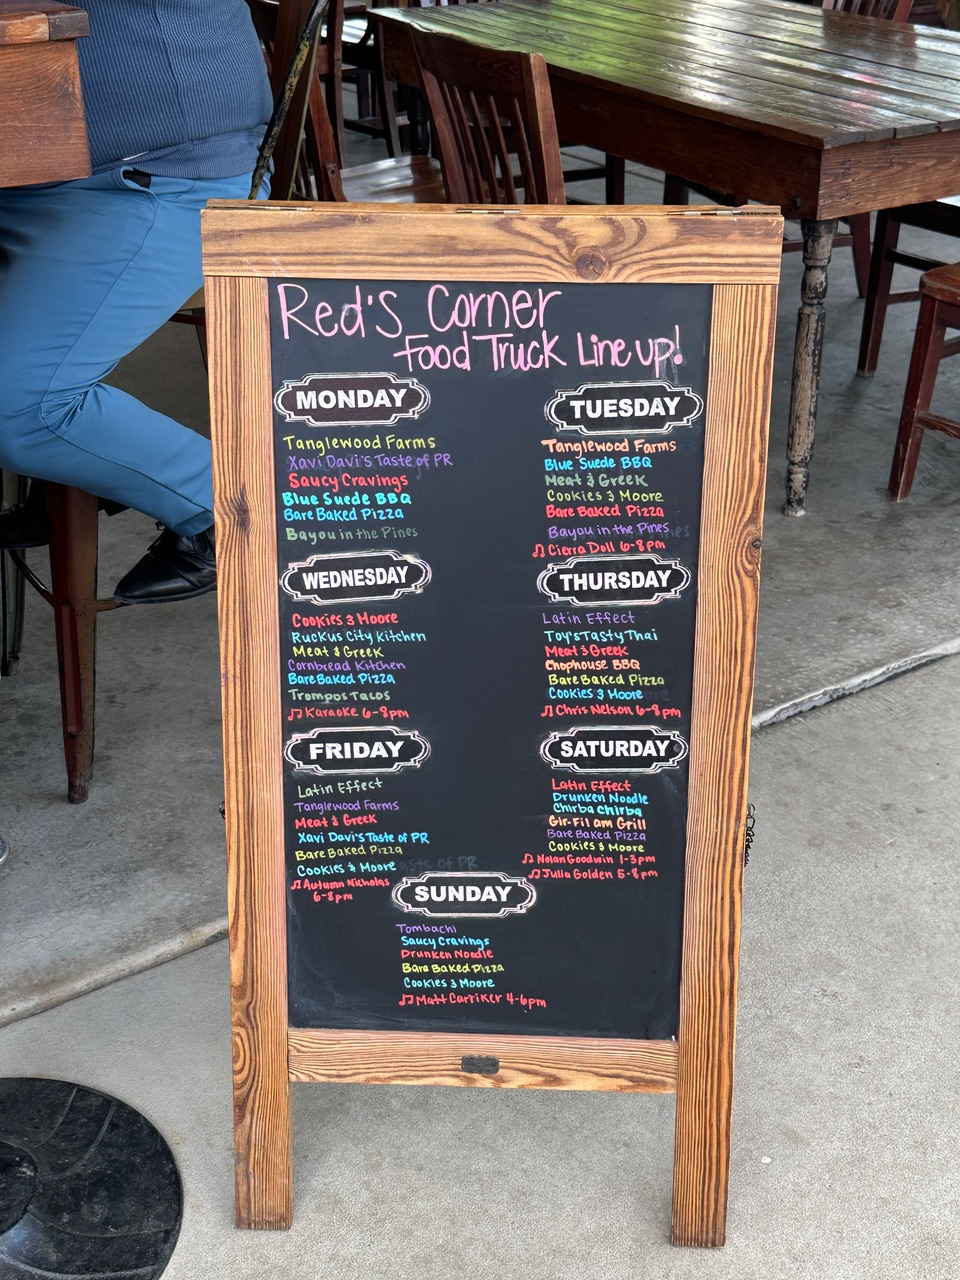 Red's Corner
Food Truck Line up!
MONDAY
Tanglewood Farms
Xavi Davi's Taste of PR
Saucy Cravings
Blue Suede BBQ
Bare Baked Pizza
Bayou in the Pines
TUESDAY
Tanglewood Farms
Blue Suede BBQ
Meat & Greek
Cookies & Moore
Bare Baked Pizza
Bayou in the Pines
♫ Cierra Doll 6-8pm
WEDNESDAY
Cookies & Moore
Ruckus City Kitchen
Meat & Greek
Cornbread Kitchen
Bare Baked Pizza
Trompos Tacos
♫ Karaoke 6-8pm
THURSDAY
Latin Effect
Toy's Tasty Thai
Meat & Greek
Chophouse BBQ
Bare Baked Pizza
Cookies & Moore
♫ Chris Nelson 6-8pm
FRIDAY
Latin Effect
Tanglewood Farms
Meat & Greek
Xavi Davi's Taste of PR
Bare Baked Pizza
Cookies & Moore
♫ Autumn Nicholas
6-8pm
SATURDAY
Latin Effect
Drunken Noodle
Chirba Chirba
Gir-Fil am Grill
Bare Baked Pizza
Cookies & Moore
♫ Nolan Goodwin 1-3pm
♫ Julia Golden 5-8pm
SUNDAY
Tombachi
Saucy Cravings
Drunken Noodle
Bare Baked Pizza
Cookies & Moore
♫ Matt Carriker 4-6pm